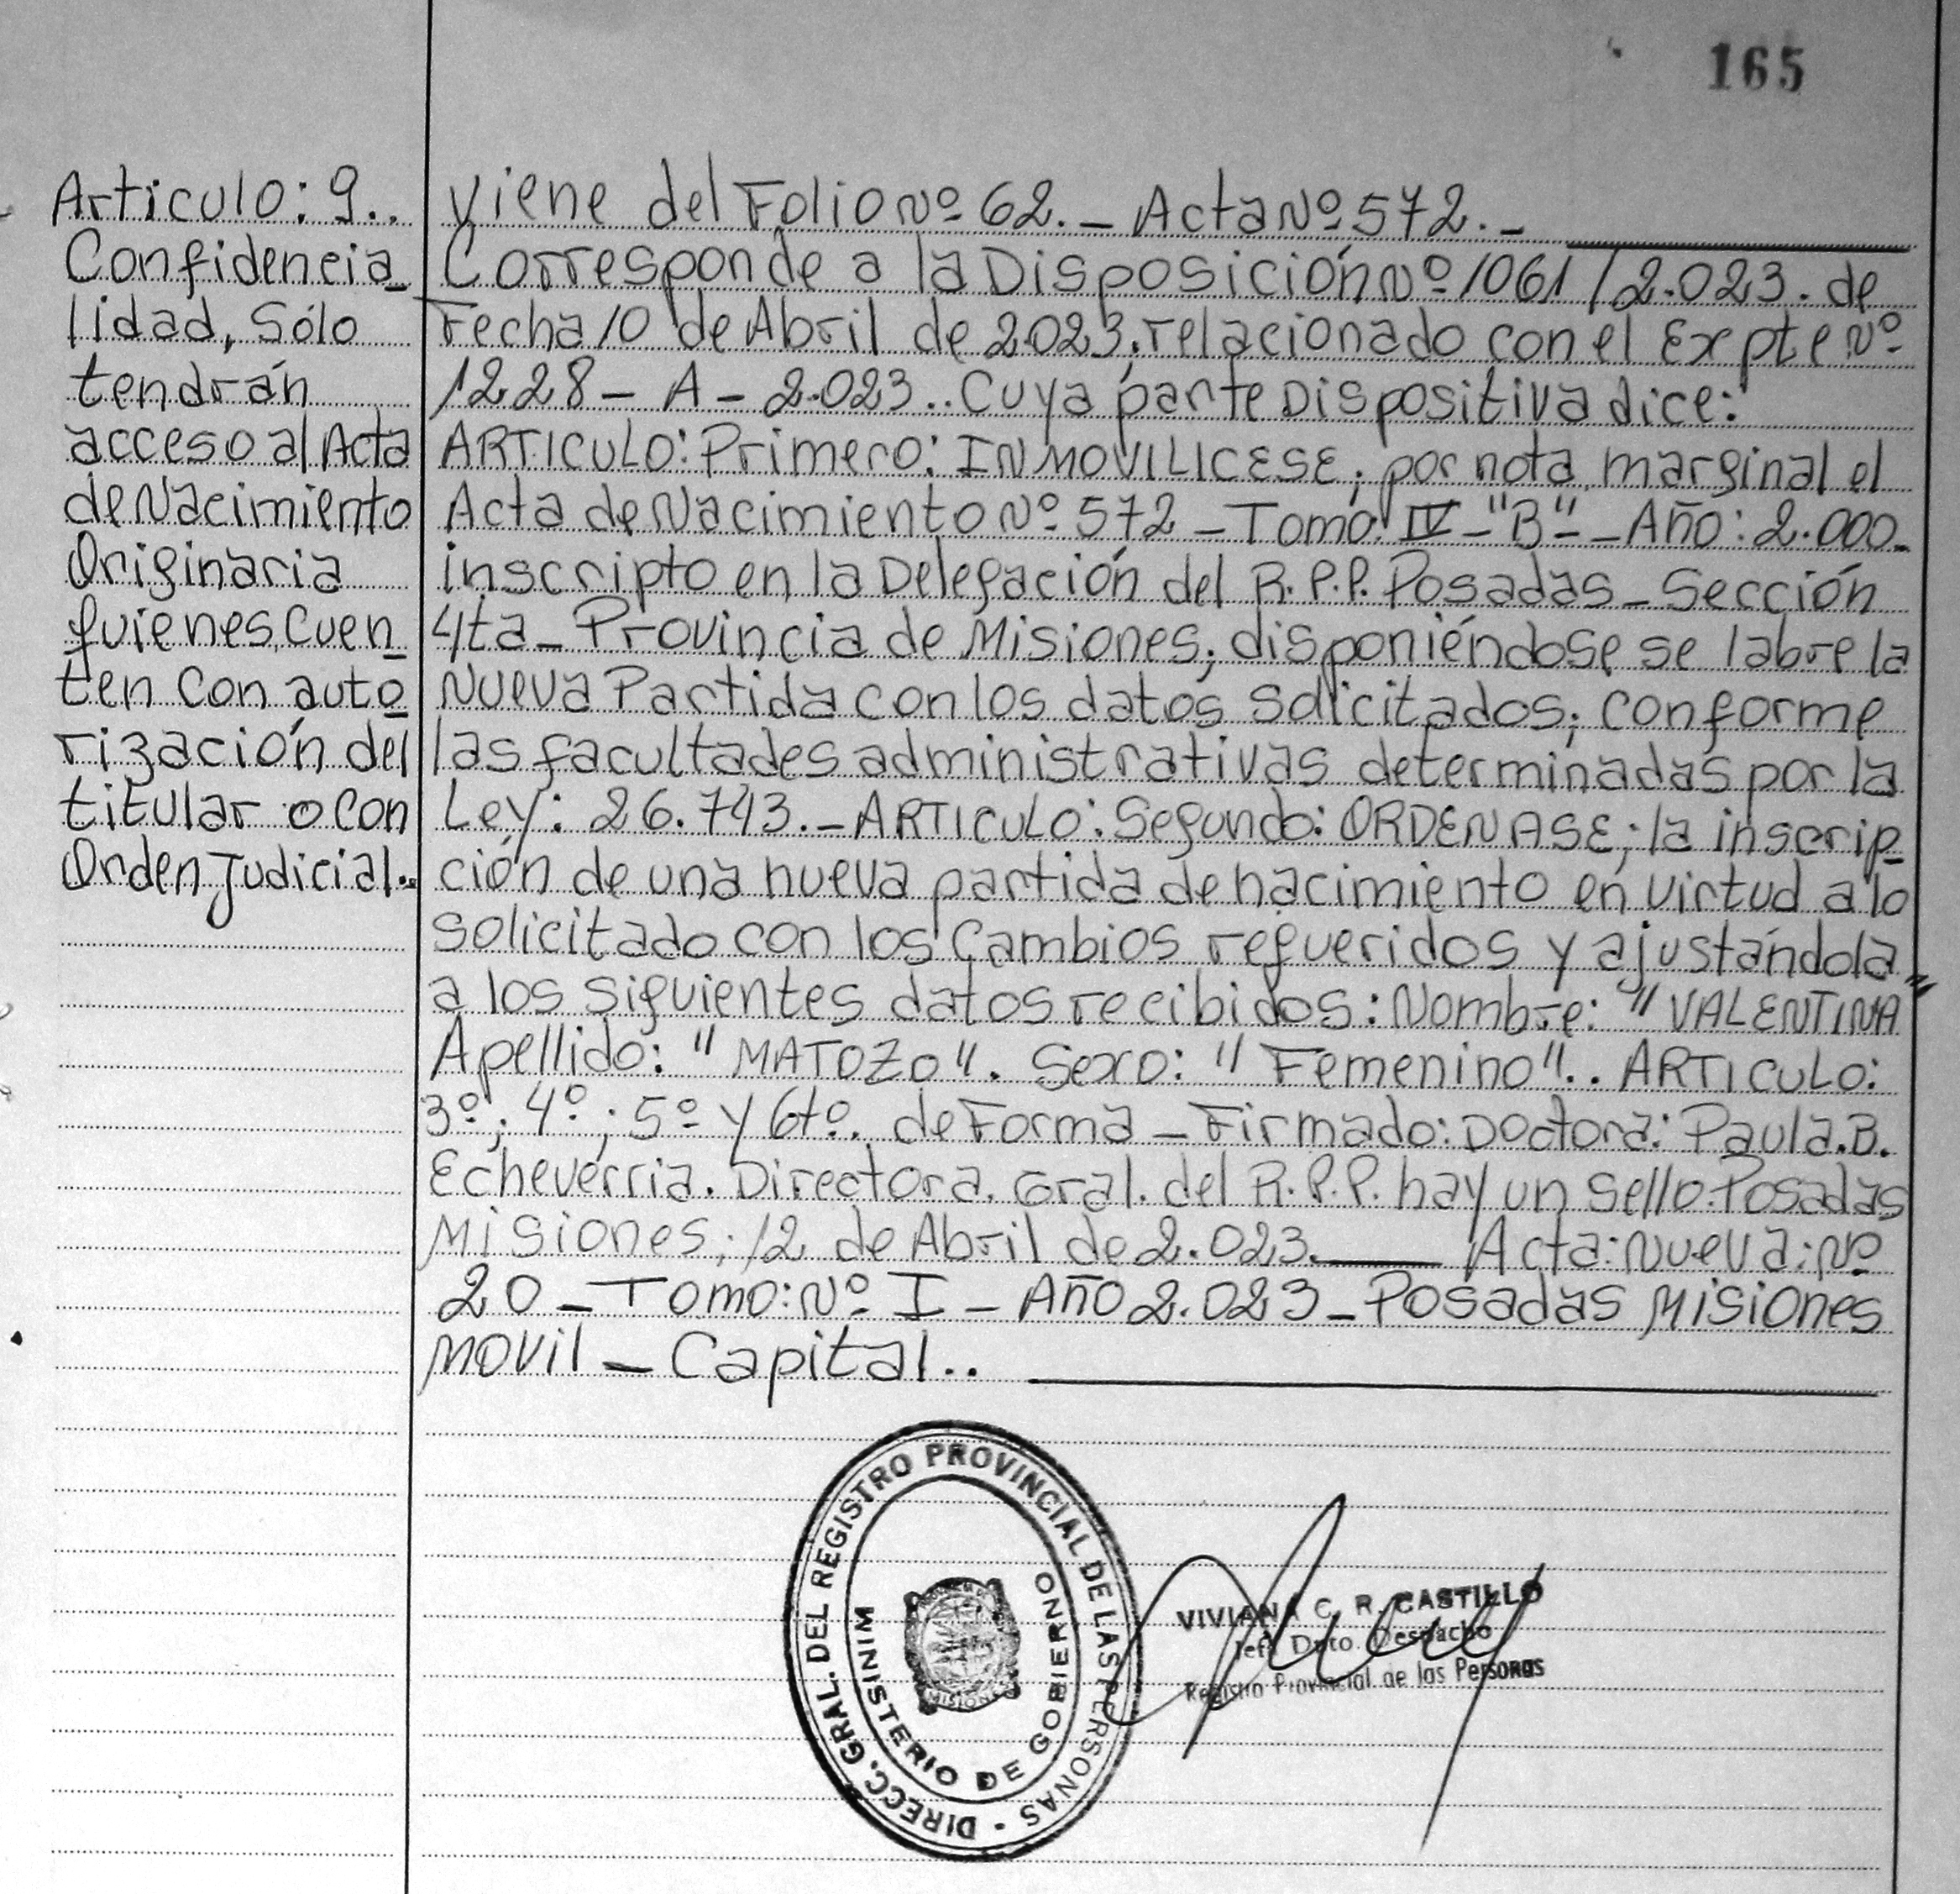 165
Articulo: 9..
Confidencia_
lidad, Sólo
tendrán
acceso al Acta
de Nacimiento
Originaria
quienes Cuen_
ten con auto_
rización del
titular o con
Orden Judicial..
Viene del Folio Nº 62._ Acta Nº 572._
Corresponde a la Disposición Nº 1061/2.023. de
Fecha 10 de Abril de 2023. relacionado con el Expte Nº
1228 _ A _ 2.023.. Cuya parte Dispositiva dice:
ARTICULO: Primero: INMOVILICESE; por nota marginal el
Acta de Nacimiento Nº 572 _ Tomo: IV _ "B" _ Año: 2.000_
inscripto en la Delegación del R.P.P. Posadas _ Sección
4ta _ Provincia de Misiones; disponiéndose se labre la
Nueva Partida con los datos solicitados; conforme
las facultades administrativas determinadas por la
Ley: 26.743._ ARTICULO: Segundo: ORDENASE; la inscrip_
ción de una nueva partida de nacimiento en virtud a lo
solicitado con los Cambios requeridos y ajustándola
a los siguientes datos recibidos: Nombre: "VALENTINA"
Apellido: "MATOZO". Sexo: "Femenino".. ARTICULO:
3º; 4º; 5º y 6tº. de Forma _ Firmado: Doctora: Paula.B.
Echeverria. Directora. Gral. del R.P.P. hay un Sello. Posadas
Misiones; 12 de Abril de 2.023.___ Acta: Nueva: Nº
20 _ Tomo: Nº I _ Año 2.023 _ Posadas Misiones
Movil _ Capital..
DIRECC. GRAL. DEL REGISTRO PROVINCIAL DE LAS PERSONAS -
MINISTERIO DE GOBIERNO
MISIONES
VIVIANA C. R. CASTILLO
Jefa Dpto. Despacho
Registro Provincial de las Personas